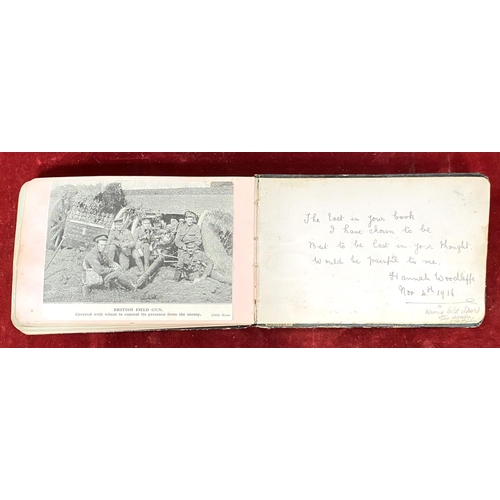 BRITISH FIELD GUN,
Covered with wheat to conceal its presence from the enemy.
The last in your book
I have chosen to be
But to be last in your thought
Would be painful to me.
Hannah Woodcliffe
Nov 4th 1916